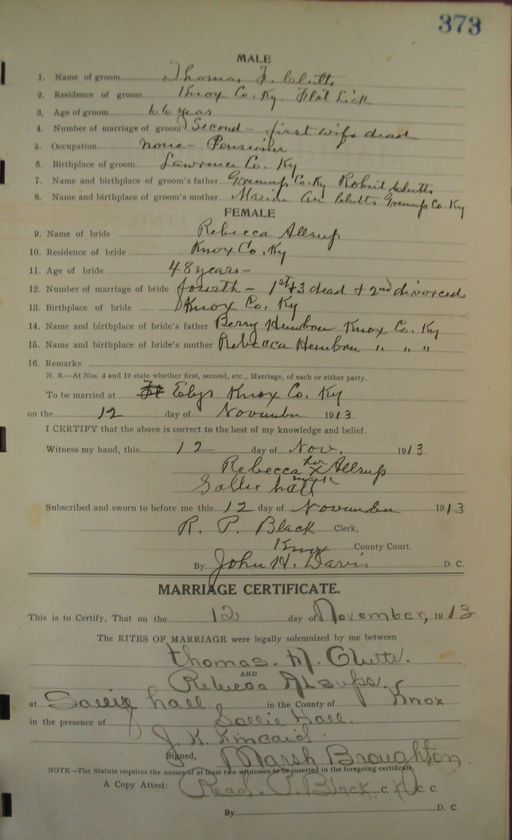 373
MALE
1. Name of groom Thomas F. Clutts
2. Residence of groom Knox Co. Ky. Flat Lick
3. Age of groom 66 years
4. Number of marriage of groom Second - first wife dead
5. Occupation none - Pensioner
6. Birthplace of groom Lawrence Co. Ky
7. Name and birthplace of groom's father Greenup Co. Ky Robert Clutts
8. Name and birthplace of groom's mother Clutts Greenup Co. Ky
FEMALE
9. Name of bride Rebecca Allsup
10. Residence of bride Knox Co. Ky
11. Age of bride 48 years -
12. Number of marriage of bride fourth - 1st + 3 dead + 2nd divorced
13. Birthplace of bride Knox Co. Ky
14. Name and birthplace of bride's father Berry Knox Co. Ky
15. Name and birthplace of bride's mother Rebecca " " "
16. Remarks
N. B.—At Nos. 4 and 12 state whether first, second, etc., Marriage, of each or either party.
To be married at Elys Knox Co. Ky
on the 12 day of November 1913
I CERTIFY that the above is correct to the best of my knowledge and belief.
Witness my hand, this 12 day of Nov. 1913
Rebecca her x mark Allsup
Sallie hall
Subscribed and sworn to before me this 12 day of November 1913
R. P. Black Clerk,
Knox County Court.
By John H. Davis D. C.
MARRIAGE CERTIFICATE.
This is to Certify, That on the 12 day of November, 1913
The RITES OF MARRIAGE were legally solemnized by me between
Thomas. Clutts.
AND
Rebecca Alsups.
at Sallie hall in the County of Knox
in the presence of Sollie Hall.
J. K. Kincaid
Signed, Marsh Broughton
NOTE—The Statute requires the names of at least two witnesses to be inserted in the foregoing certificate.
A Copy Attest: Read. P. Black C. K. C. C.
By D. C.